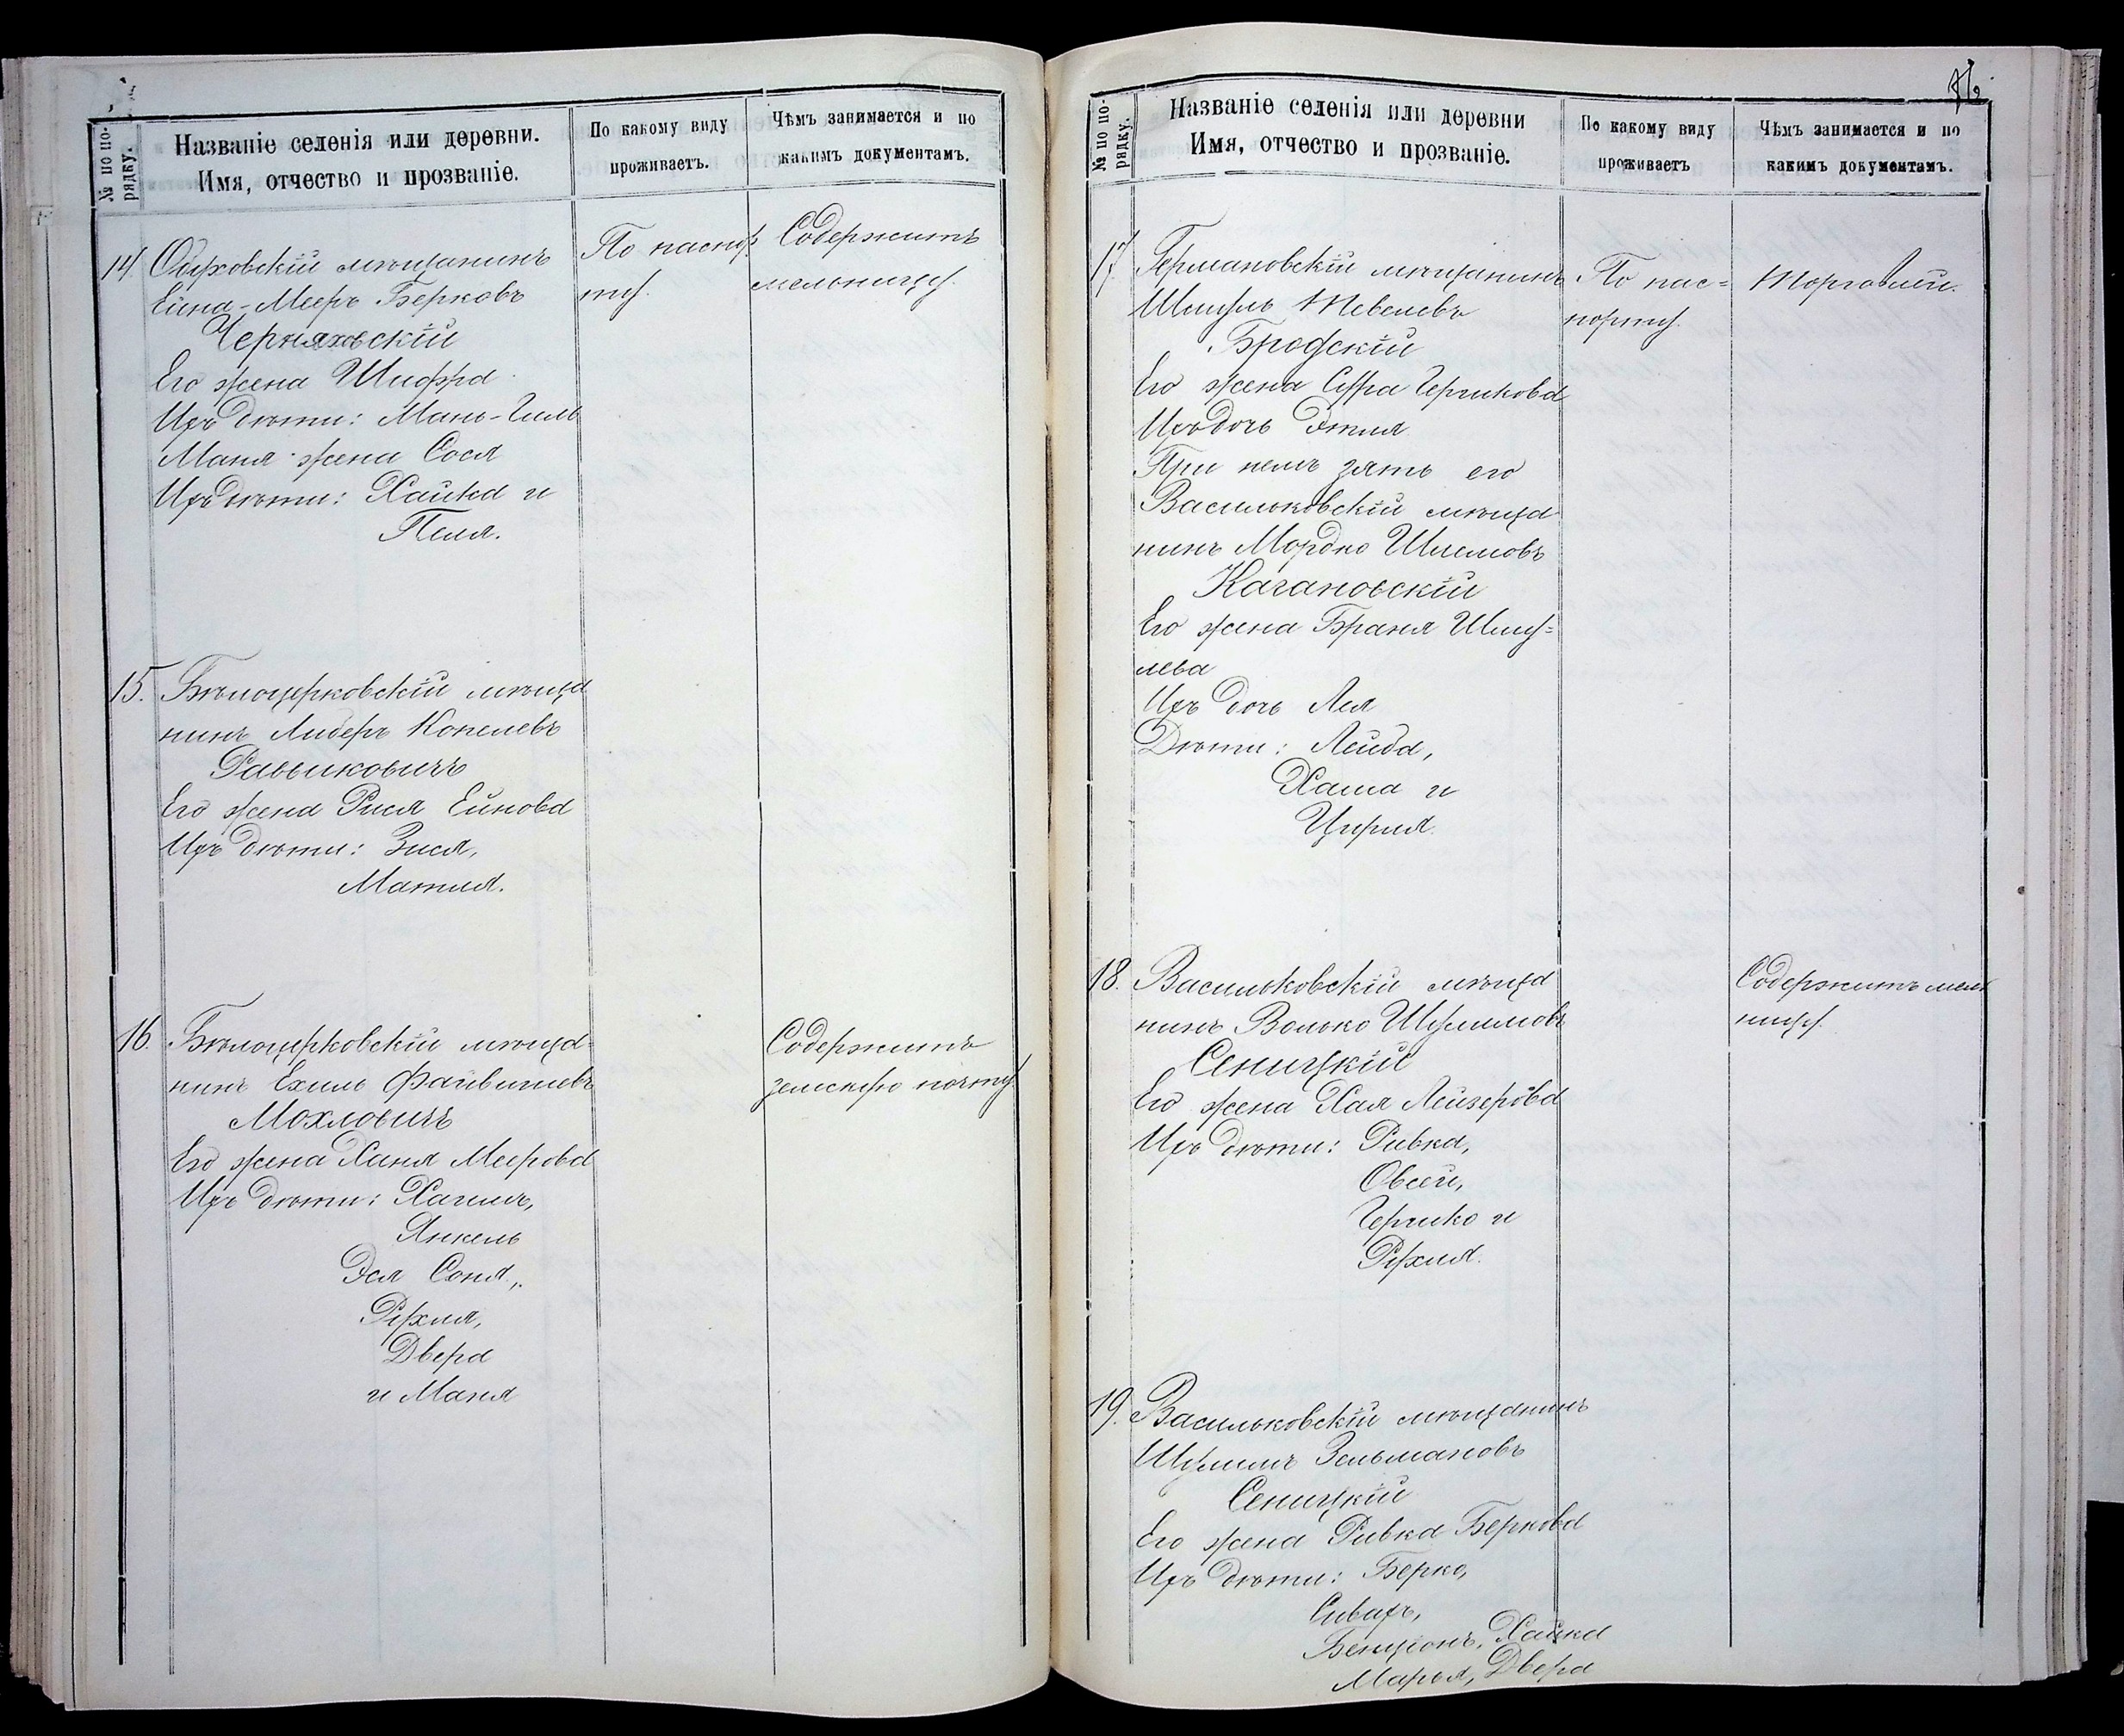 № по по-
рядку.
Названіе селенія или деревни.
Имя, отчество и прозваніе.
По какому виду
проживаетъ.
Чѣмъ занимается и по
какимъ документамъ.
14. мѣщанинъ
Мееръ Берковъ
Черняховскій
Его жена Шифра
Ихъ дѣти: Мань-
Маня жена Сося
Ихъ дѣти: Хайка и
Песя.
По паспор
ту.
Содержитъ
мельницу.
15. Бѣлоцерковскій мѣща
нинъ Либеръ Копелевъ
Равиковичъ
Его жена Рися Ейнова
Ихъ дѣти: Зися,
Матля.
16. Бѣлоцерковскій мѣща-
нинъ Ехиль Файвишевъ
Мохловичъ
Его жена Ханя Меерова
Ихъ дѣти: Хаимъ,
Янкель
Эся Соня,
Рухля,
Двера
и Маня
Содержитъ
земскую почту.
№ по по-
рядку.
Названіе селенія или деревни
Имя, отчество и прозваніе.
По какому виду
проживаетъ
Чѣмъ занимается и по
какимъ документамъ.
17. Германовскій мѣщанинъ
Шмуль Тевелевъ
Бродскій
Его жена Сура Гершкова
Ихъ дочь Этля
При немъ зять его
Васильковскій мѣща
нинъ Мордко Шлемовъ
Кагановскій
Его жена Браня Шму=
лева
Ихъ дочь Лея
Дѣти: Лейба,
Хаша и
Цирля.
По пас=
порту.
Торговлей.
18. Васильковскій мѣща
нинъ Волько Шулимовъ
Сеницкій
Его жена Хая Лейзерова
Ихъ дѣти: Ривка,
Овсей,
Гершко и
Рухля.
Содержитъ мель
ницу.
19. Васильковскій мѣщанинъ
Шулимъ Зельмановъ
Сеницкій
Его жена Ривка Беркова
Ихъ дѣти: Берко,
Бенціонъ, Хайка
Марья, Двера